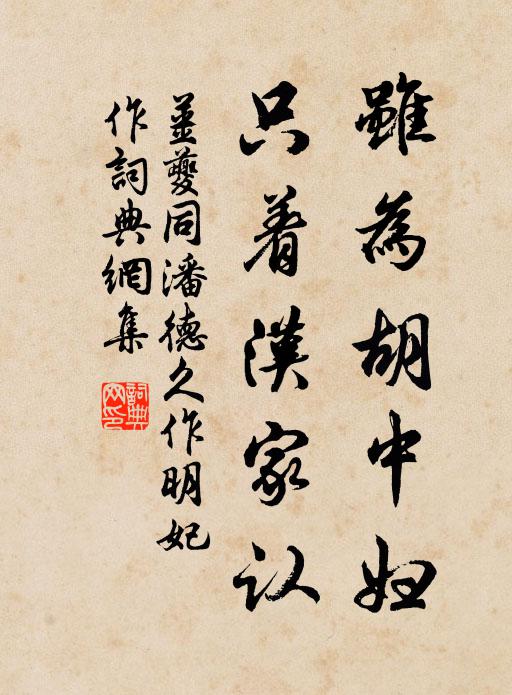 雖為胡中婦
只着漢家衣
薑夔同潘德久作明妃
作詞典網集
詞典
网印